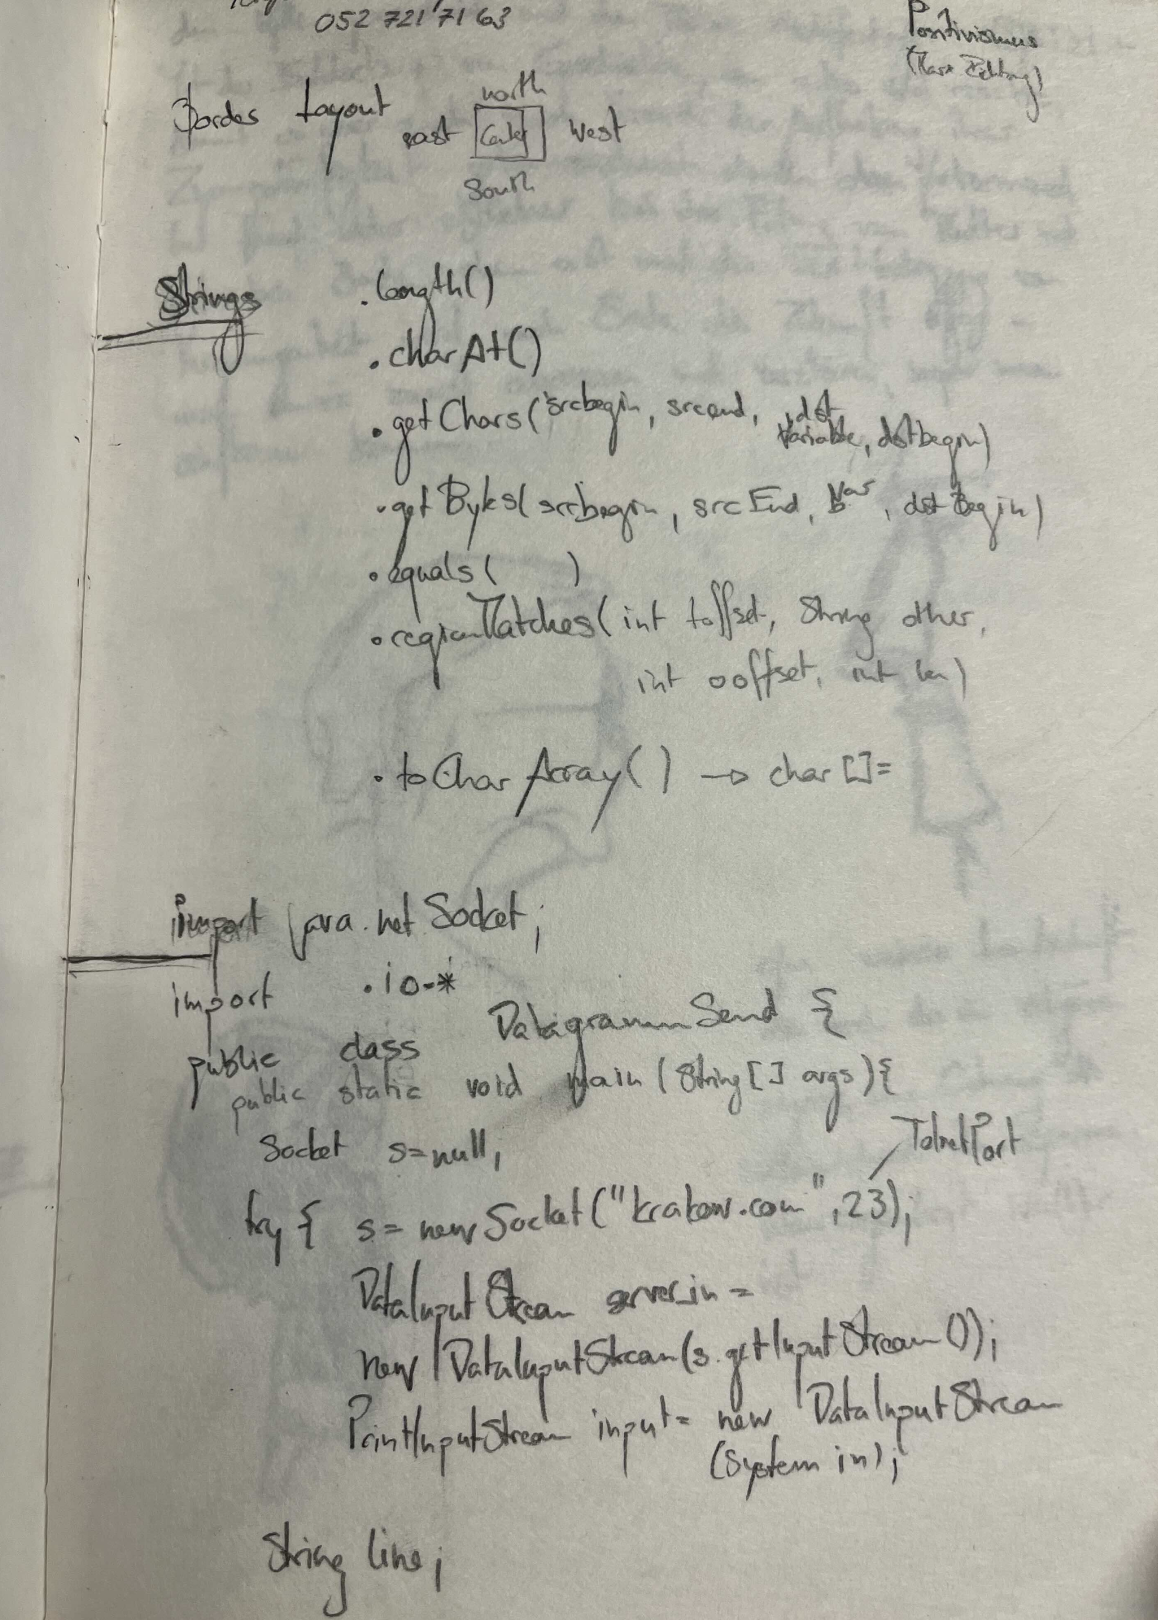 052 721 71 63
Positivismus
Border Layout
north
east Center West
South
Strings
.length()
.charAt()
.getChars(srcbegin, srcend, dst
Variable, dstbegin)
.getBytes(srcbegin, srcEnd, Var, dstBegin)
.equals( )
.regionMatches(int toffset, String other,
int ooffset, int len)
.toCharArray() → char[]=
import java.net.Socket;
import .io.*
public class DatagrammSend {
public static void main (String[] args){
Socket s=null;
TelnetPort
try { s= new Socket("krakow.com",23);
DataInputStream server_in =
new DataInputStream(s.getInputStream());
PrintInputStream input= new DataInputStream
(System in);
String line;